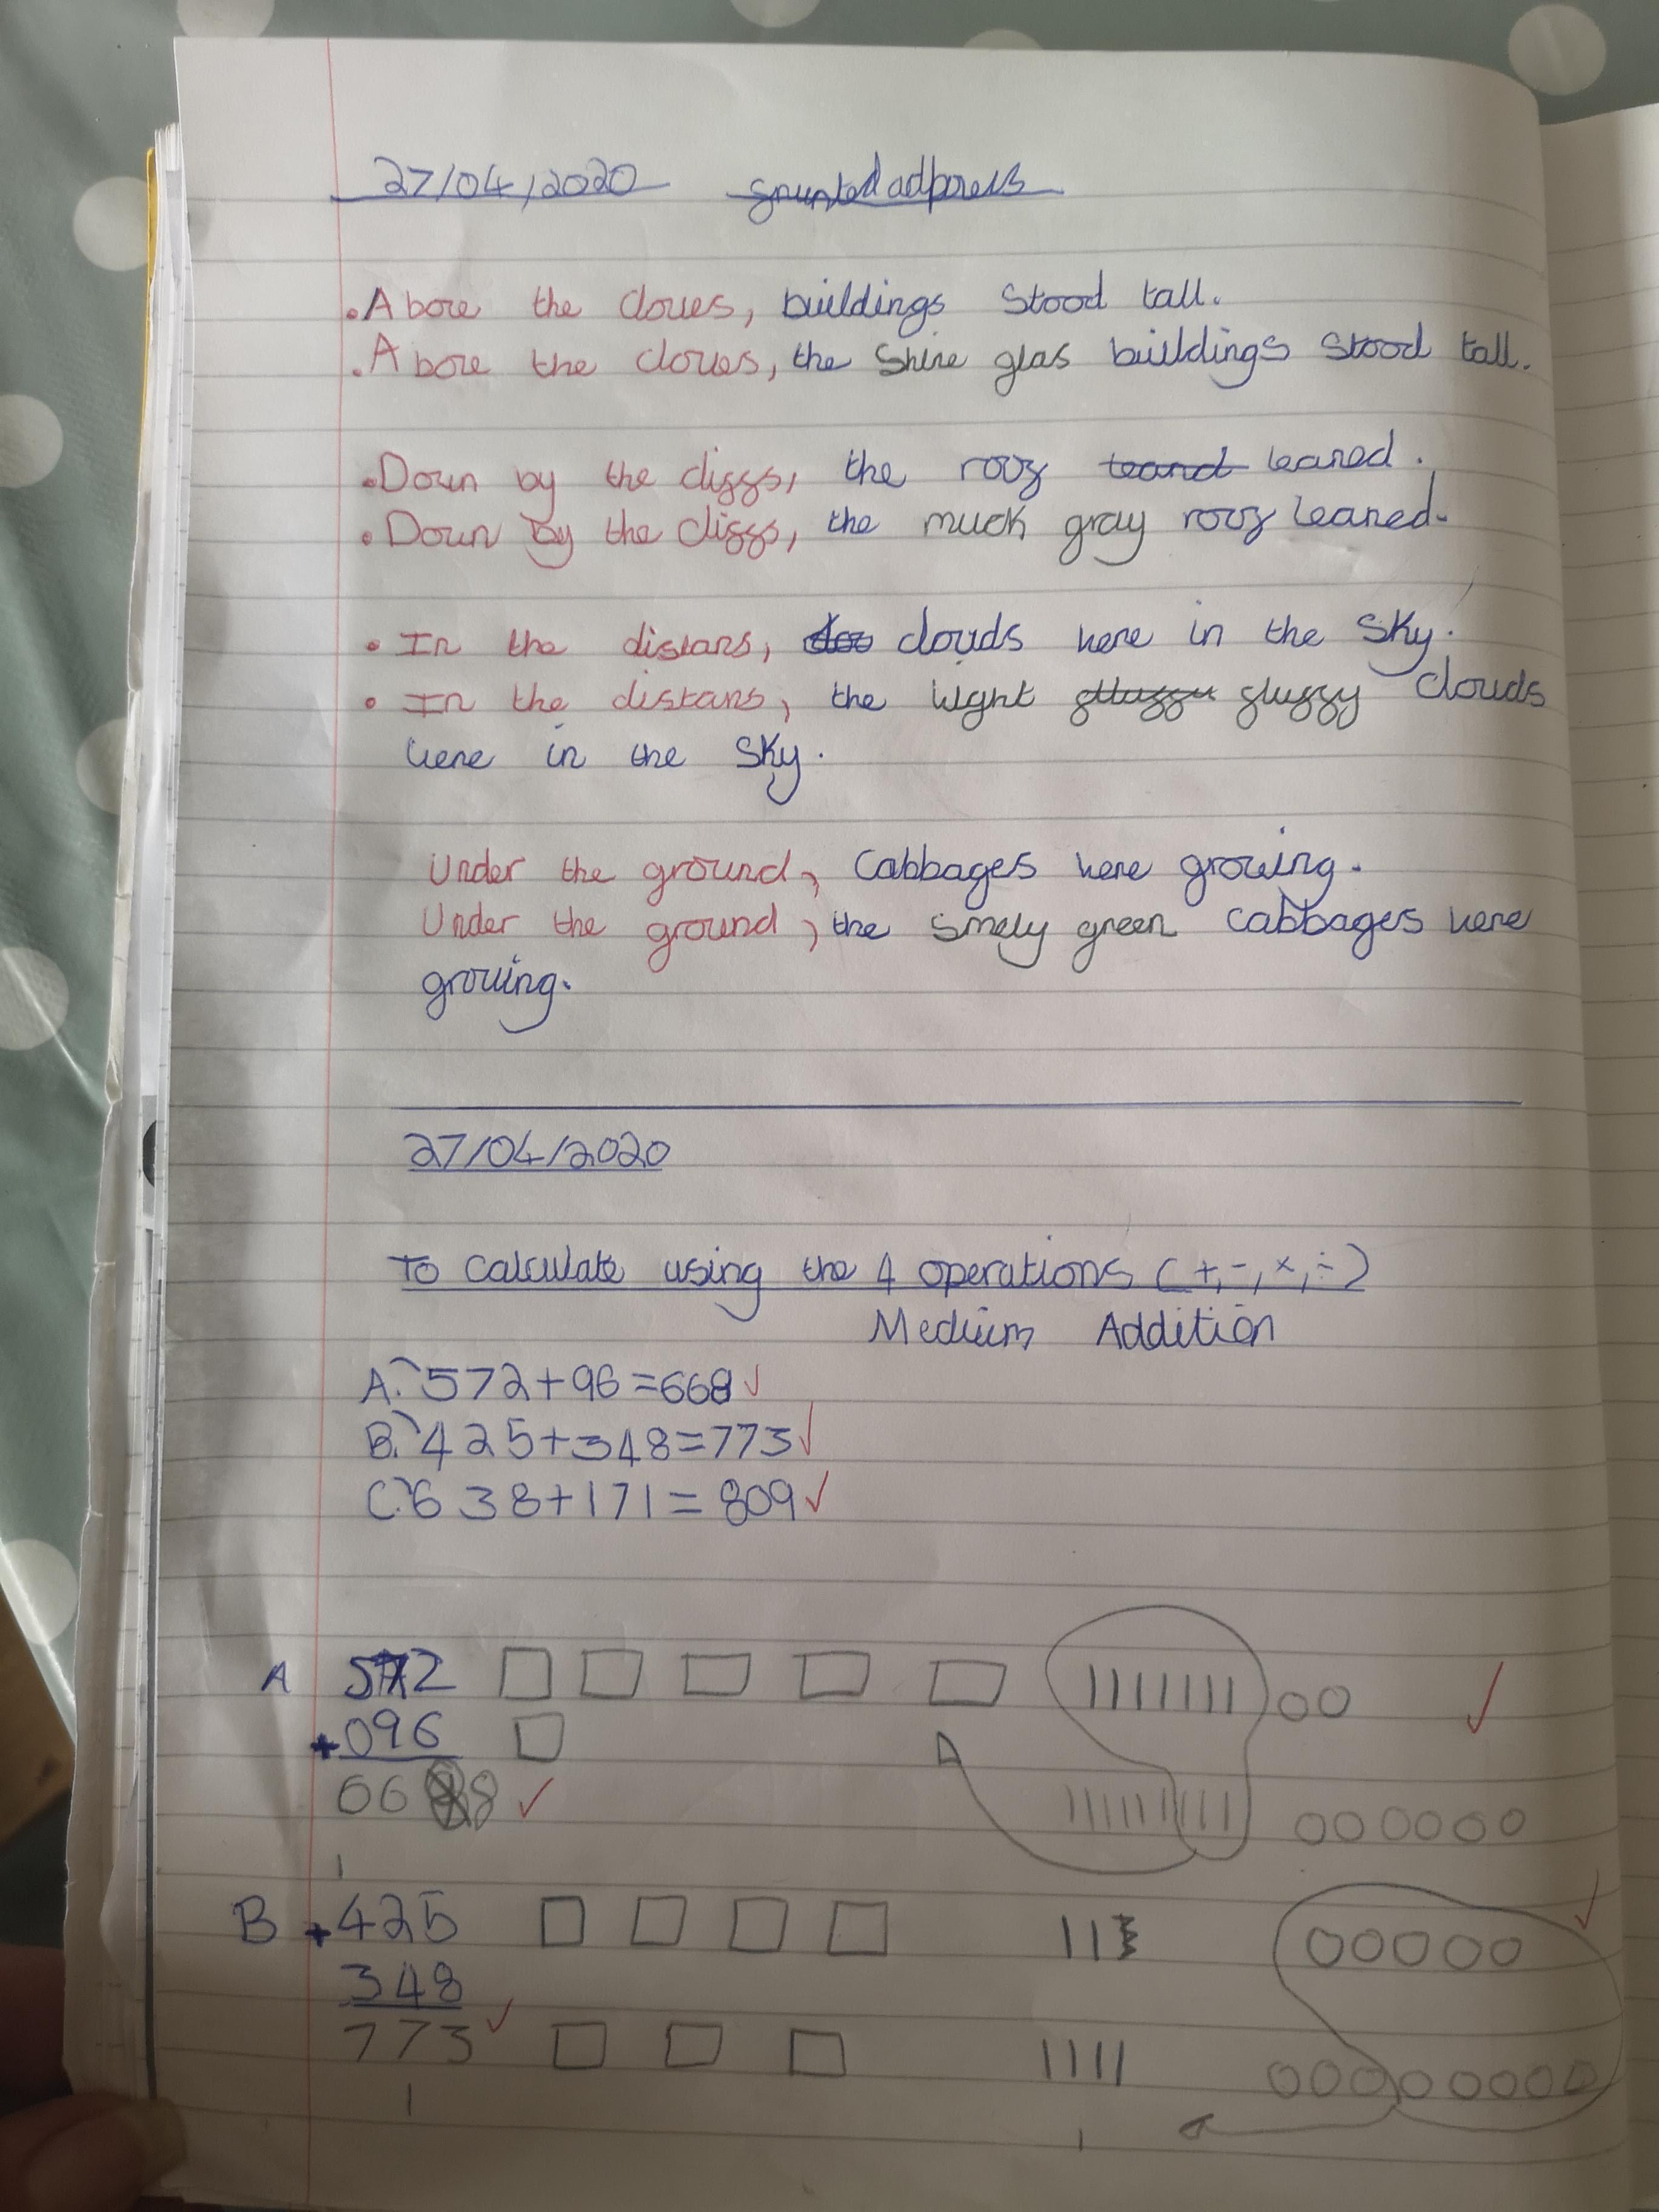 27/04/2020
.Above the cloues, buildings stood tall.
.Above the cloues, the shine glas buildings stood tall.
.Down by the cliffs, the roof leaned.
.Down by the cliffs, the muck gray roof leaned.
• In the distans, clouds here in the sky.
• In the distans, the light fluffy clouds
here in the sky.
Under the ground, cabbages here growing.
Under the ground, the smely green cabbages here
growing.
27/04/2020
To calculate using the 4 operations (+,-,×,÷)
Medium Addition
A.) 572+96=668
B.) 425+348=773
C.) 638+171=809
A 572
+096
668
1
B +425
348
773
1
1